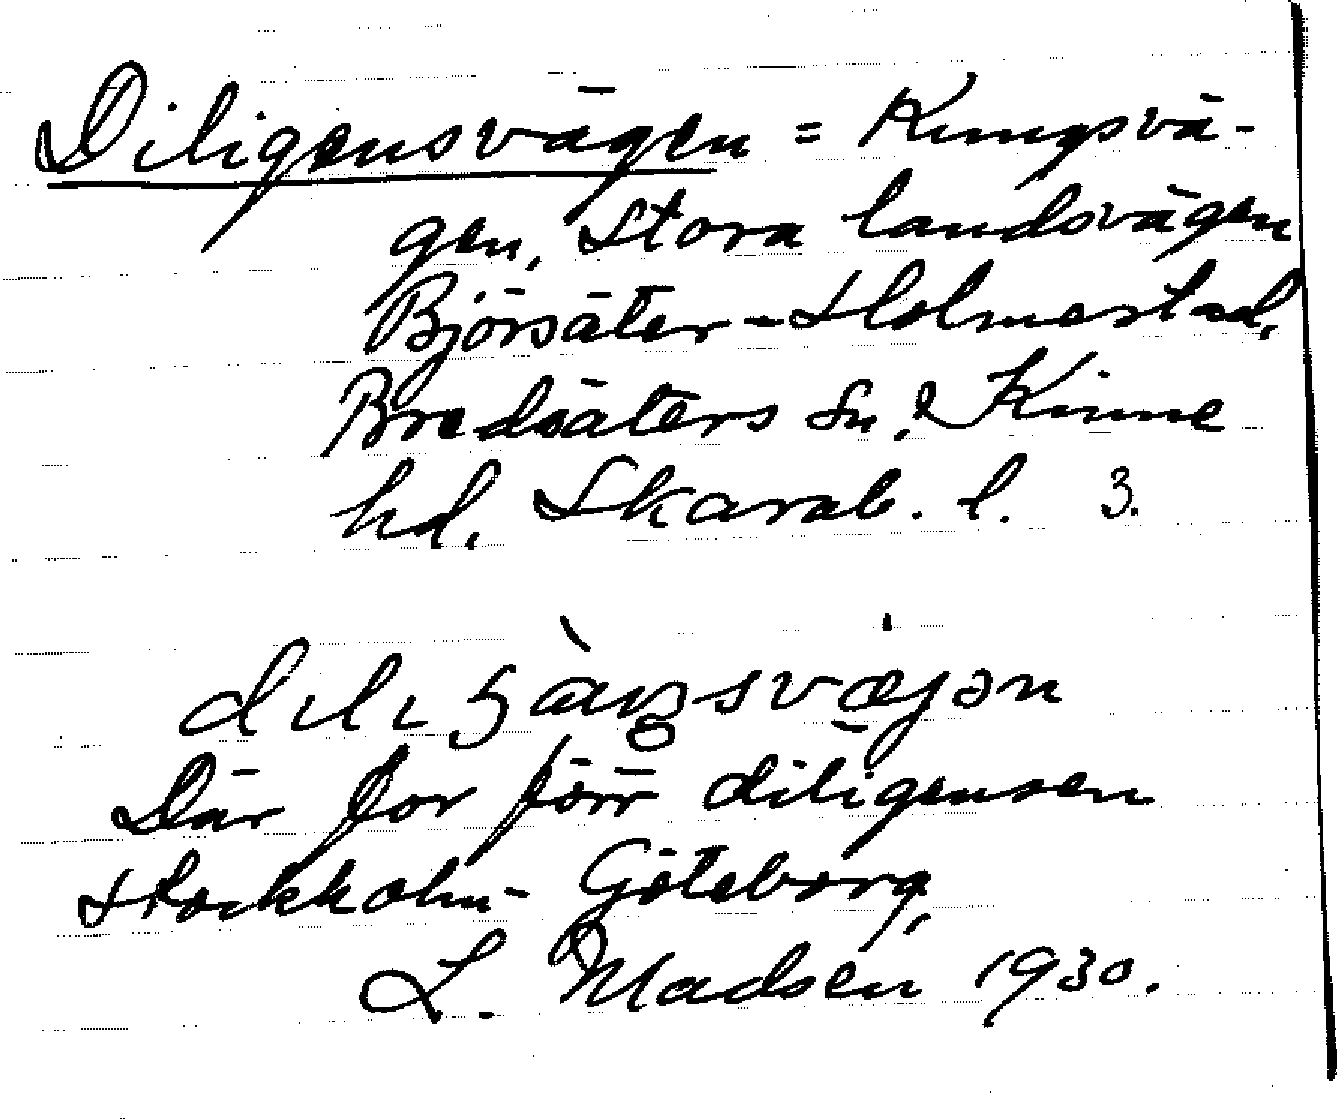 Diligensvägen = Kungsvä-
gen, Stora landsvägen
Björsäter - Holmestad,
Bredsäters sn, & Kinne
hd. Skarab. l. 3.
Där for förr diligensen
Stockholm - Göteborg,
L. Madsén 1930.